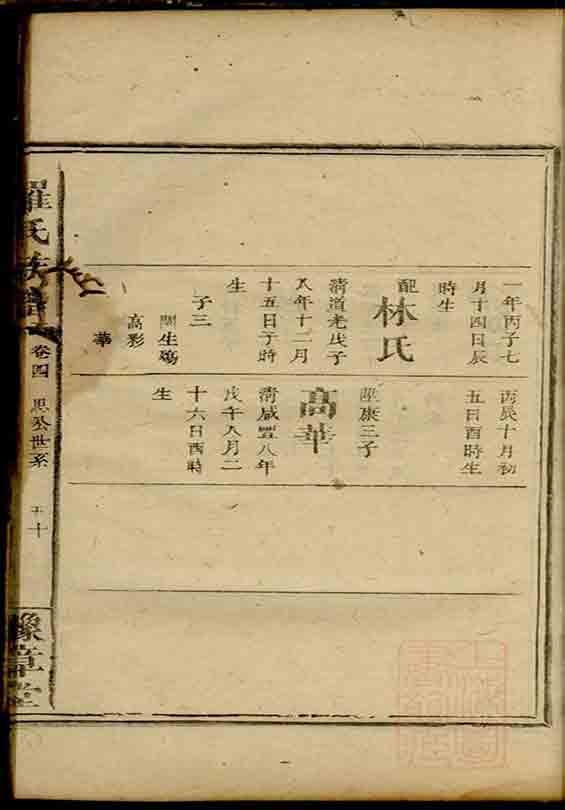 一年丙子七
月十四日辰
時生
配
林氏
清道光戊子
八年十二月
十五日子時
生
子三
生殤
高彩
華
丙辰十月初
五日酉時生
康三子
高華
清咸豐八年
戊午八月二
十六日酉時
生
羅氏族譜
卷四
世系
十
豫章堂